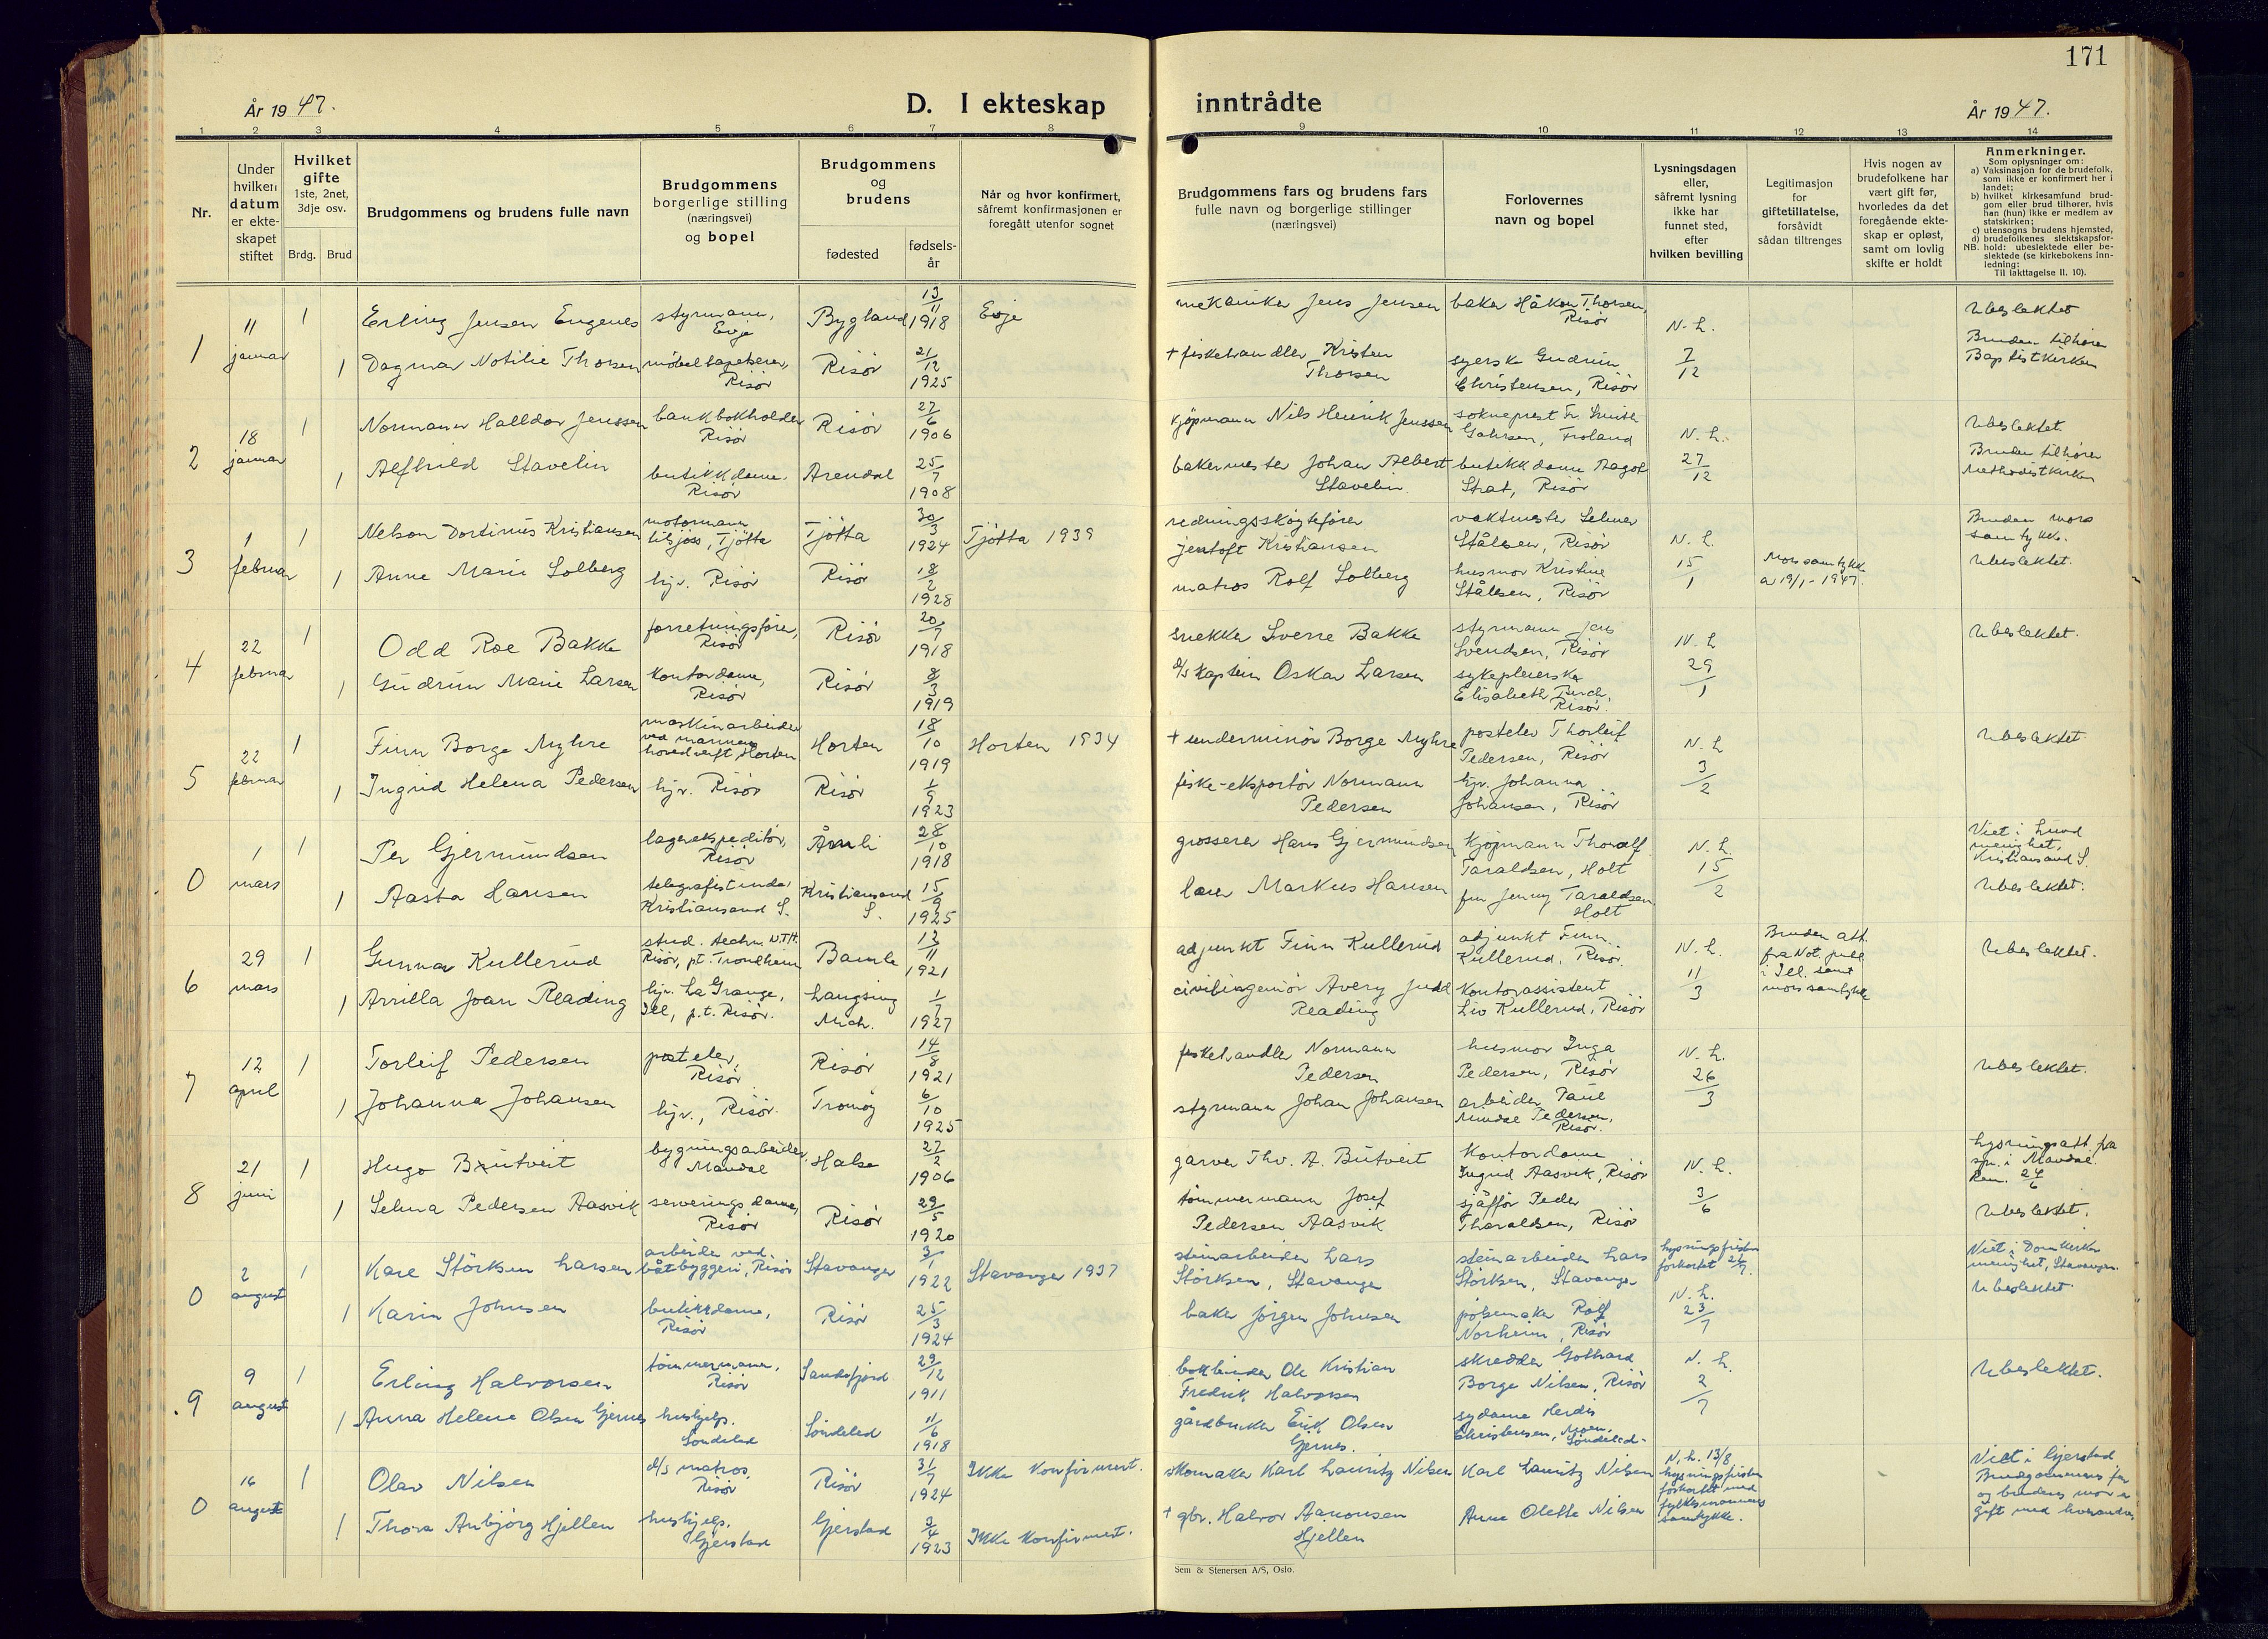 171
År 1947.
D. I ekteskap
inntrådte
År 1947.
1 2 3 4 5 6 7 8
9 10 11 12 13 14
Nr.
Under hvilken datum er ekteskapet stiftet
Hvilket gifte
1ste, 2net, 3dje osv.
Brdg. Brud
Brudgommens og brudens fulle navn
Brudgommens
borgerlige stilling
(næringsvei)
og bopel
Brudgommens
og
brudens
fødested
fødsels-
år
Når og hvor konfirmert,
såfremt konfirmasjonen er
foregått utenfor sognet
Brudgommens fars og brudens fars
fulle navn og borgerlige stillinger
(næringsvei)
Forlovernes
navn og bopel
Lysningsdagen
eller,
såfremt lysning
ikke har
funnet sted,
efter
hvilken bevilling
Legitimasjon
for
giftetillatelse,
forsåvidt
sådan tiltrenges
Hvis nogen av
brudefolkene har
vært gift før,
hvorledes da det
foregående ekte-
skap er opløst,
samt om lovlig
skifte er holdt
Anmerkninger.
Som oplysninger om:
a) Vaksinasjon for de brudefolk,
som ikke er konfirmert her i
landet;
b) hvilket kirkesamfund brud-
gom eller brud tilhører, hvis
han (hun) ikke er medlem av
statskirken;
c) utensogns brudens hjemsted,
d) brudefolkenes slektskapsfor-
NB. hold: ubeslektede eller be-
slektede (se kirkebokens inn-
ledning:
Til iakttagelse II. 10).
1 11 januar
1 Erling Jensen Eugenes styrmann, Evje Bygland 13/11 1918 Evje
mekaniker Jens Jensen baker Håkon Thorsen, Risör N. L. 7/12 Ubeslektet
1 Dagmar Notilie Thorsen møbeltapetserer, Risör Risör 21/12 1925
+ fiskehandler Kristen Thorsen syerske Gudrun Christensen, Risör Bruden tilhører Baptistkirken
2 18 januar
1 Normann Halldor Jenssen bankbokholder Risör Risör 27/6 1906
kjöpmann Nils Henrik Jenssen sokneprest Fr. Smith Froland N. L. 27/12 Ubeslektet.
1 Alfhild Stavelin butikkdame, Risör Arendal 25/7 1908
bakermester Johan Albert Stavelin butikkdame Aagot Strat, Risör Bruden tilhører Methodistkirken
3 1 februar
1 Nelson Dortinus Kristiansen motormann tilsjøss, Tjøtta Tjøtta 30/3 1924 Tjøtta 1939
redningsskøytefører Jentoft Kristiansen vaktmester Selmer Stålsen, Risör N. L. 15/1 Bruden mors samtykke.
1 Anne Marie Solberg hjv. Risör Risör 18/2 1928
matros Rolf Solberg husmor Kristine Stålsen, Risör Mors samtykke a 19/1-1947. Ubeslektet.
4 22 februar
1 Odd Roe Bakke forretningsfører, Risör Risör 20/7 1918
snekker Sverre Bakke styrmann Jens Svendsen, Risör N. L. 29/1 Ubeslektet.
1 Gudrun Marie Larsen Kontordame, Risör Risör 8/3 1919
d/s kaptein Oskar Larsen sykepleierske Elisabeth Risör.
5 22 februar
1 Finn Borge Myhre maskinarbeider ved marinens hovedverft, Horten Horten 18/10 1919 Horten 1934
+ underminør Borge Myhre postelev Thorleif Pedersen, Risör N. L. 3/2 Ubeslektet.
1 Ingrid Helena Pedersen hjv. Risör Risör 1/9 1923
fiske-eksportör Normann Pedersen hjv. Johanna Johansen, Risör
0 1 mars
1 Per Gjermundsen lagerekspeditör, Risör Åmli 28/10 1918
grosserer Hans Gjermundsen Kjöpmann Thoralf Taraldsen, Holt N. L. 15/2 Viet i Lund menighet, Kristiansand S.
1 Aasta Hansen Kristiansand S. Kristiansand S. 15/9 1925
Markus Hansen fru Jenny Taraldsen Holt Ubeslektet.
6 29 mars
1 Gunnar Kullerud stud. techn. N.T.H. Risör, pt. Trondheim Bamle 12/11 1921
adjunkt Finn Kullerud adjunkt Finn Kullerud, Risör. N. L. 11/3 Bruden att. fra Not. publ. i Ill. samt mors samtykke Ubeslektet.
1 Arrilla Joan Reading hjv. La Grange, Ill, p.t. Risör. Langsing Mich. 1/7 1927
civilingeniör Avery Judd Reading Kontorassistent Liv Kullerud, Risör
7 12 april
1 Torleif Pedersen postelev, Risör Risör 14/8 1921
fiskehandler Normann Pedersen husmor Inga Pedersen, Risör N. L. 26/3 Ubeslektet.
1 Johanna Johansen hjv., Risör. Tromöy 6/10 1925
styrmann Johan Johansen arbeider Paul Pedersen, Risör.
8 21 juni
1 Hugo Butveit bygningsarbeider, Mandal Halse 27/2 1906
garver Thv. A. Butveit Kontordame Ingrid Aasvik, Risör N. L. 3/6 Lysningsatt. fra spr. i Mandal.
1 Selma Pedersen Aasvik serveringsdame, Risör Risör 29/5 1920
tömmermann Josef Pedersen Aasvik sjåffør Peder Tharaldsen, Risör Ubeslektet.
0 2 august
1 Kare Störksen Larsen arbeider ved båtbyggeri, Risör Stavanger 3/1 1922 Stavanger 1937
steinarbeider Lars Störksen, Stavanger steinarbeider Lars Störksen, Stavanger Lysningsfristen forkortet N. L. 23/7 Viet i Domkirken menighet, Stavanger.
1 Karin Johnsen butikkdame, Risör Risör 25/3 1924
baker Jörgen Johnsen pölsemaker Rolf Norheim, Risör Ubeslektet.
9 9 august
1 Erling Halvorsen tömmermann, Risör Sandefjord 29/12 1911
bokbinder Ole Kristian Fredrik Halvorsen skredder Gothard Borge Nilsen, Risör N. L. 2/7 Ubeslektet.
1 Anna Helene Olsen Gjernes hushjelp. Söndeled Söndeled 11/6 1918
gårdbruker Erik Olsen Gjernes. sydame Herdis Christensen, Söndeled.
0 16 august
1 Olav Nilsen d/s matros. Risör Risör 31/7 1924 Ikke konfirmert.
skomaker Karl Lauritz Nilsen Karl Lauritz Nilsen N. L. 13/8 Lysningsfristen forkortet med fylkesmannens samtykke. Viet i Gjerstad. Brudgommens far og brudens mor er gift med hverandre.
1 Thora Anbjörg Hjellen hushjelp. Gjerstad Gjerstad 3/4 1923 Ikke konfirmert.
+ gbr. Halvor Aanonsen Hjellen Anne Olette Nilsen
Sem & Stenersen A/S, Oslo.